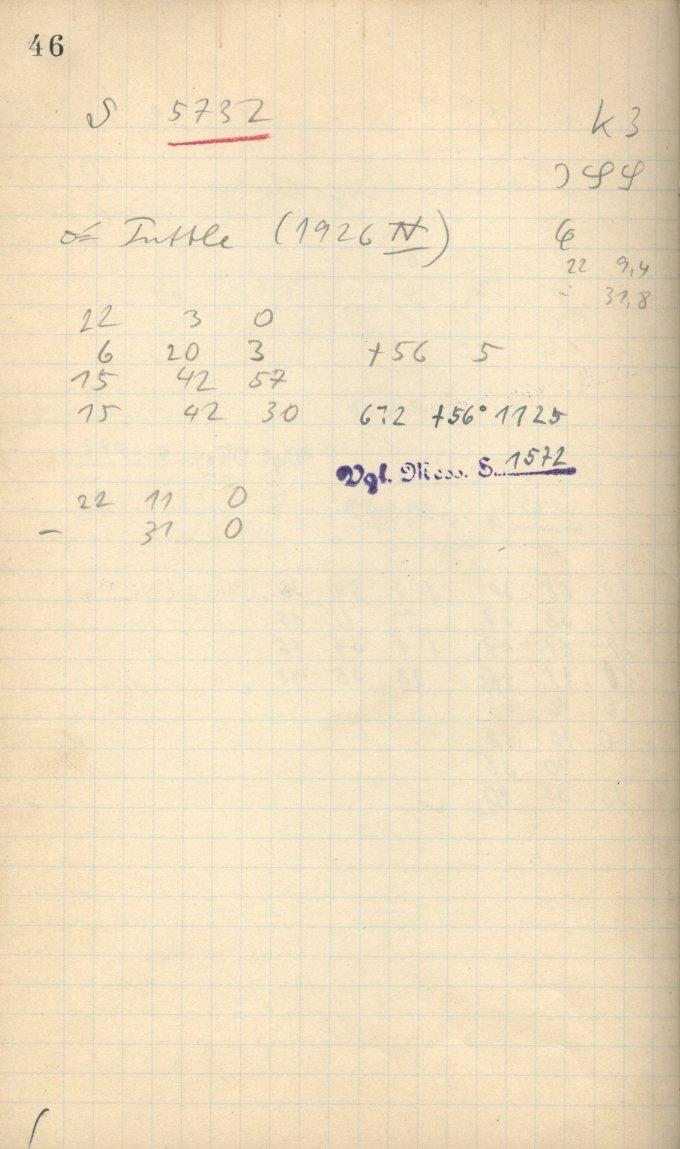 46
S 5732
K 3
☌ Tuttle (1926 IV)
22 9,4
- 31,8
22 3 0
6 20 3 +56 5
15 42 57
15 42 30 6.2 +56° 1125
Vgl. Mess. S. 1572
22 11 0
- 31 0